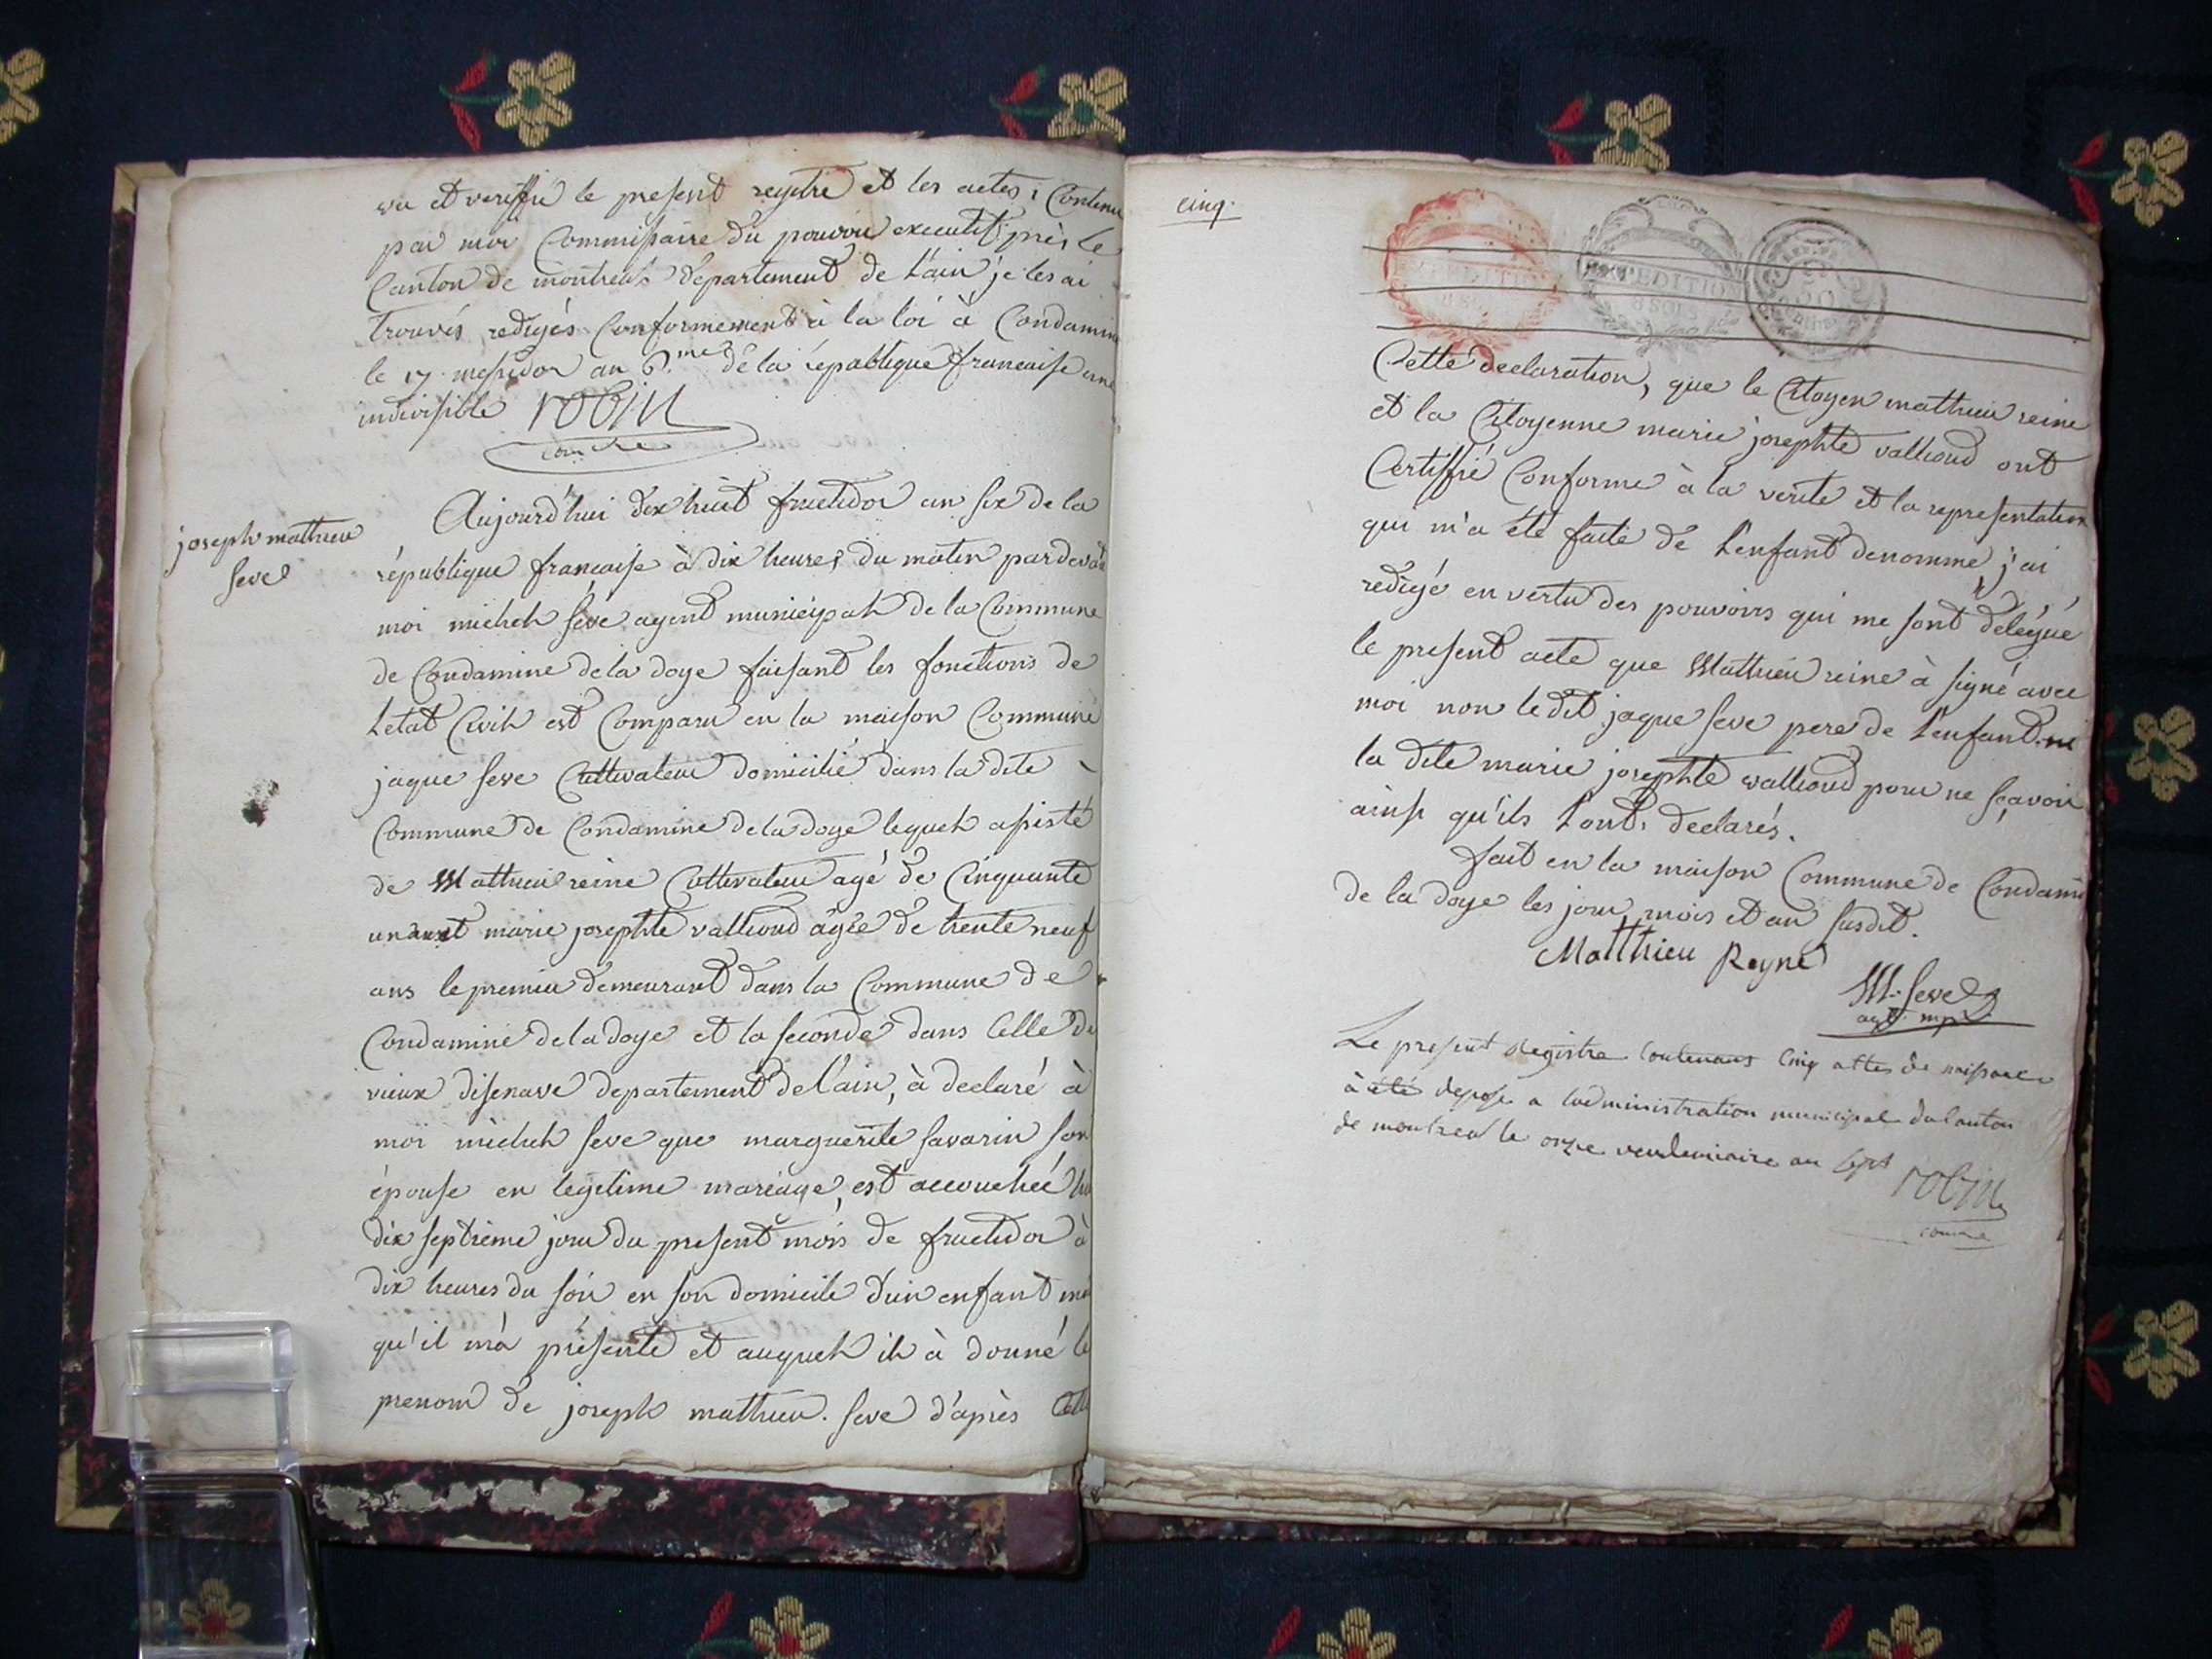 vu et veriffié le present regitre et les actes, Contenu
par moi Commissaire du pouvoir executif près le
Canton de montreal departement de l'ain je les ai
trouvés redigés Conformement à la loi à Condamine
le 17 messidor an 6.me de la république francaise une
indivisible robin
joseph mathieu
seve
Aujourd'hui dix huit fructidor an six de la
république francaise à dix heures du matin pardevant
moi michel séve agent municipal de la Commune
de Condamine de la doye faisant les fonctions de
letat Civil est Comparu en la maison Commune
jaque seve Cultivateur domicilié dans la dite
Commune de Condamine de la doye lequel assisté
de Mathieu reine Cultivateur agé de Cinquante
un ans et marie josephte vallioud agée de trente neuf
ans le premier demeurant dans la Commune de
Condamine de la doye et la seconde dans Celle de
vieux disenave departement de l'ain, à declaré à
moi michel seve que marguerite savarin son
épouse en legitime mariage, est accouchée
dix septieme jour du present mois de fructidor à
dix heures du soir en son domicile d'un enfant
qu'il m'à présenté et auquel il à donné le
prenom de joseph mathieu. seve d'après Cette
cinq.
EXPEDITION
8 SOLS
EXPEDITION
8 SOLS
Cette declaration, que le Citoyen mathieu reine
et la Citoyenne marie josephte vallioud ont
Certiffié Conforme à la verite et la representation
qui m'a été faite de l'enfant denommé, j'ai
redigé en vertu des pouvoirs qui me sont délégué
le present acte que Mathieu reine à signé avec
moi non le dit jaque seve pere de l'enfant ni
la dite marie josephte vallioud pour ne sçavoir
ainsi qu'ils l'ont, declarés.
fait en la maison Commune de Condamine
de la doye les jour mois et an susdit.
Matthieu Reyne
M. Seve
agt. mpl
Le present Registre contenant cinq actes de naissance
à été deposé a l'administration municipal du canton
de montreal le onze vendemiaire an sept robin